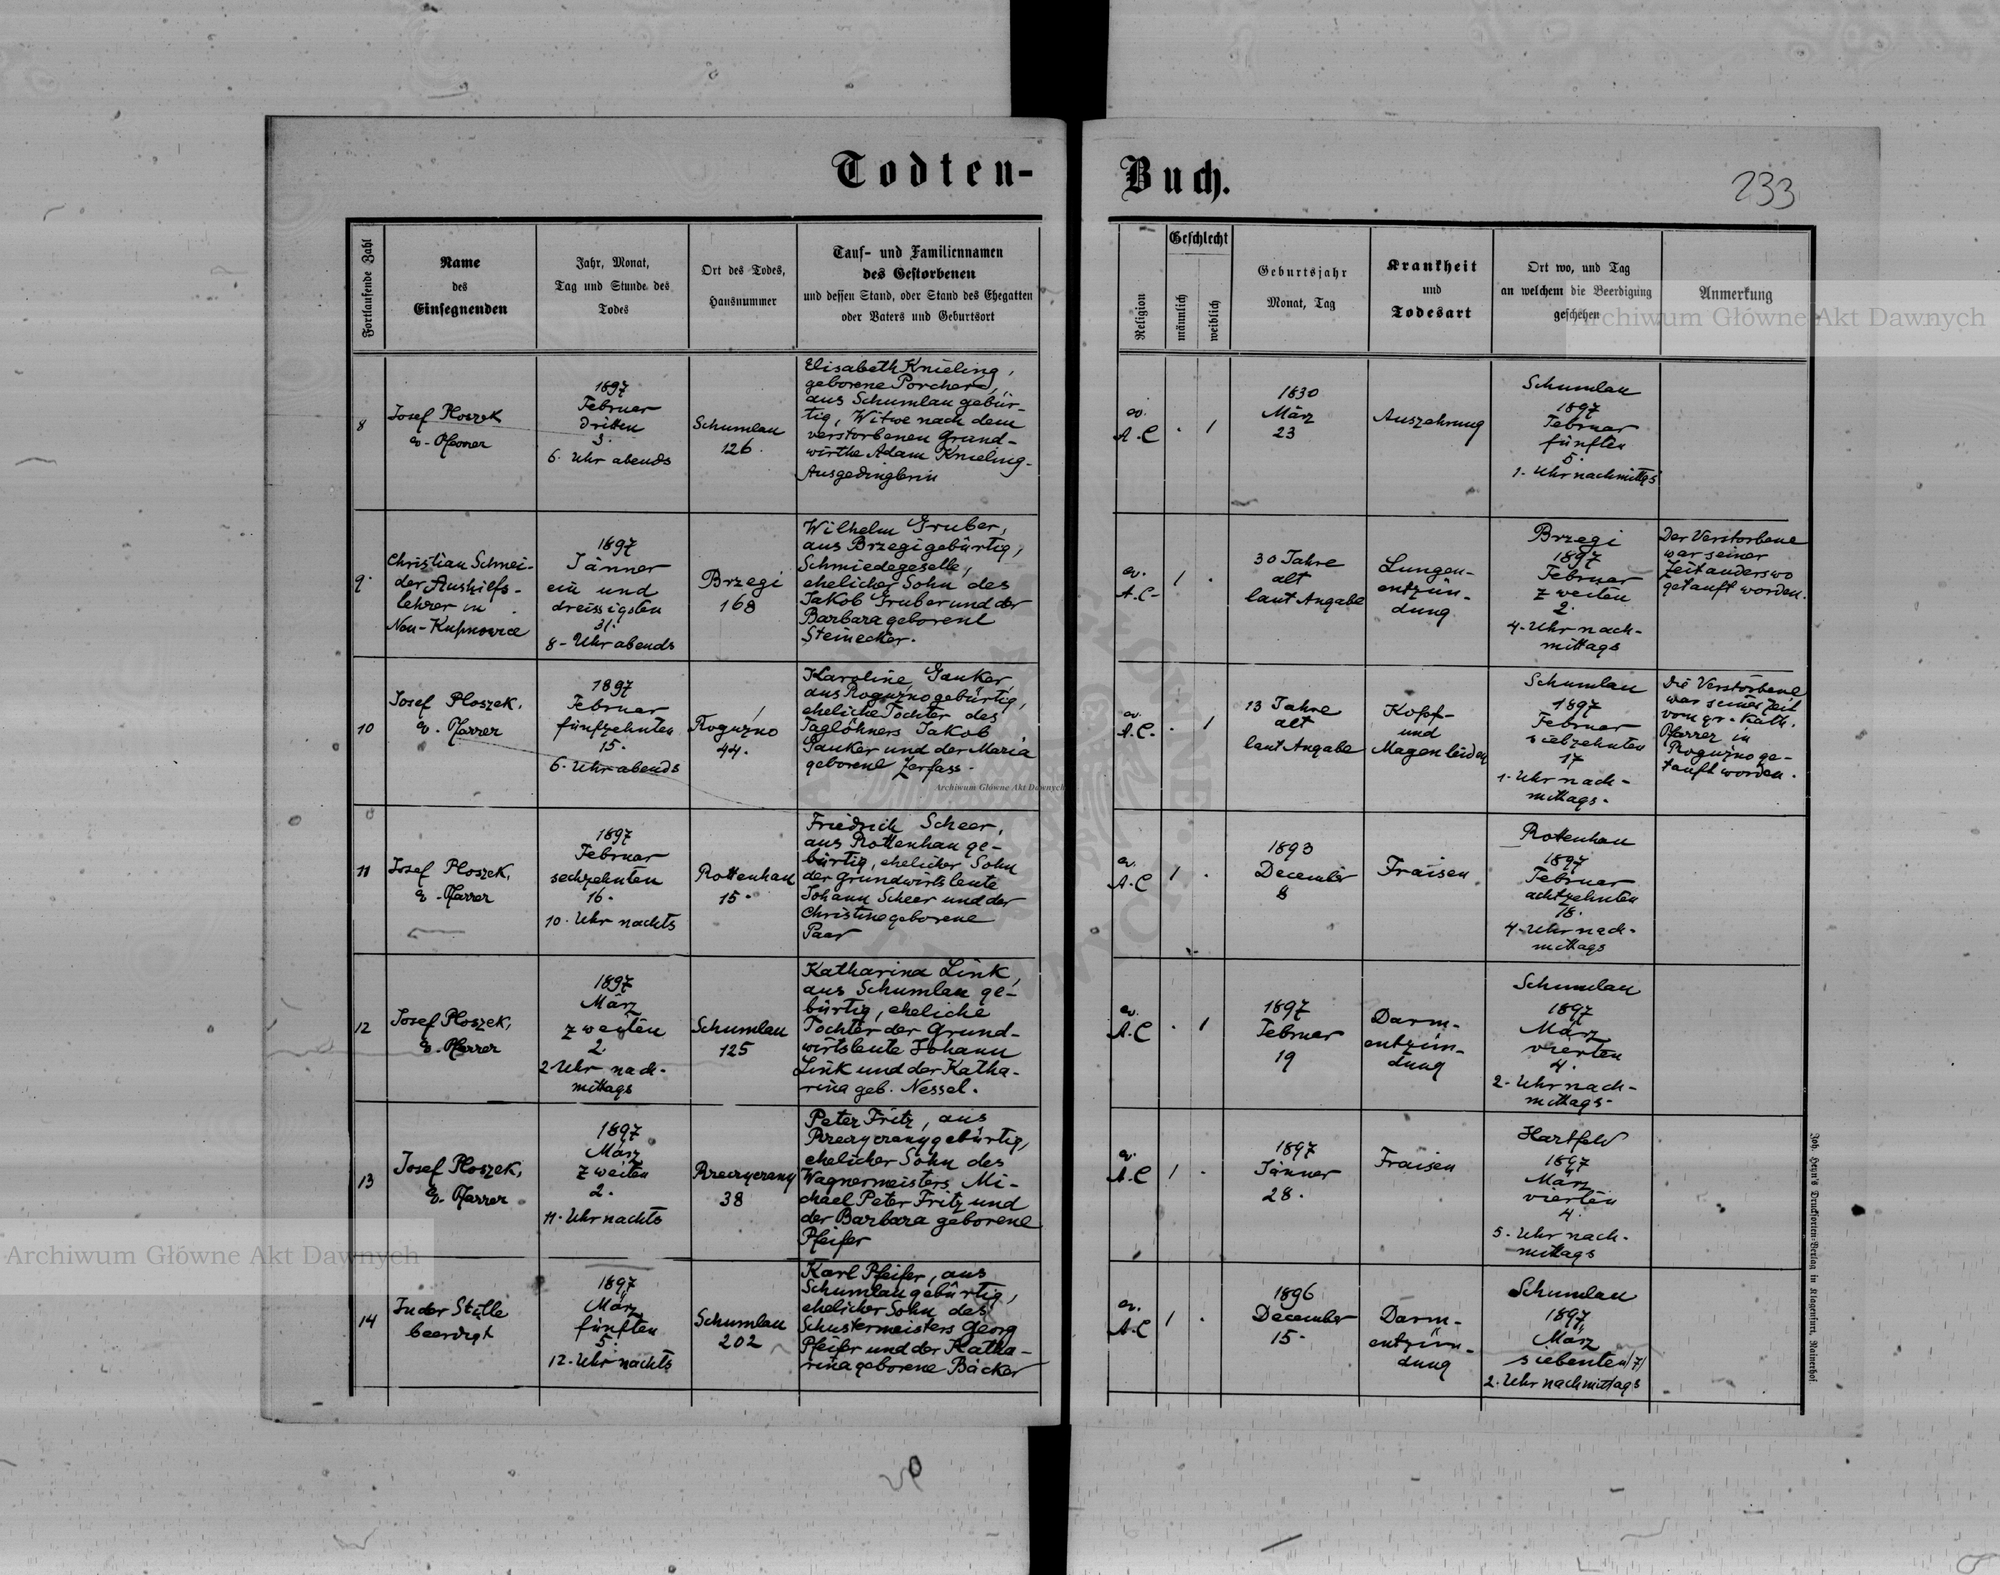 Todten-
Buch.
233
Fortlaufende Zahl
Name
des
Einsegnenden
Jahr, Monat,
Tag und Stunde des
Todes
Ort des Todes,
Hausnummer
Tauf- und Familiennamen
des Gestorbenen
und dessen Stand, oder Stand des Ehegatten
oder Vaters und Geburtsort
Religion
Geschlecht
männlich
weiblich
Geburtsjahr
Monat, Tag
Krankheit
und
Todesart
Ort wo, und Tag
an welchem die Beerdigung
geschehen
Anmerkung
Archiwum Główne Akt Dawnych
8
Josef Ploszek
ev. Pfarrer
1897
Februar
dritten
3.
6. Uhr abends
Schumlau
126.
Elisabeth Knieling,
geborene Porcher,
aus Schumlau gebür-
tig, Witwe nach dem
verstorbenen Grund-
wirthe Adam Knieling.
Ausgedinglerin
ev.
A.C
. 1
1830
März
23
Auszehrung
Schumlau
1897
Februar
fünften
5.
1. Uhr nachmittgs
9.
Christian Schnei-
der Aushilfs-
lehrer in
Neu-Kupnowice
1897
Jänner
ein und
dreissigsten
31.
8- Uhr abends
Brzegi
168
Wilhelm Gruber,
aus Brzegi gebürtig,
Schmiedegeselle,
ehelicher Sohn des
Jakob Gruber und der
Barbara geborene
Steinecker.
ev.
A.C-
1 .
30 Jahre
alt
laut Angabe
Lungen-
entzün-
dung
Brzegi
1897
Februar
zweiten
2.
4-Uhr nach-
mittags
Der Verstorbene
war seiner
Zeit anderswo
getauft worden.
10
Josef Ploszek,
ev. Pfarrer
1897
Februar
fünfzehnten
15.
6. Uhr abends
Roguźno
44.
Karoline Ganker,
aus Roguźno gebürtig,
eheliche Tochter des
Taglöhners Jakob
Ganker und der Maria
geborene Zerfass.
ev.
A.C-
. 1
13 Jahre
alt
laut Angabe
Kopf-
und
Magenleiden
Schumlau
1897
Februar
siebzehnten
17
1-Uhr nach-
mittags.
Die Verstorbene
war seiner Zeit
vom gr.-kath.
Pfarrer in
Roguźno ge-
tauft worden.
Archiwum Główne Akt Dawnych
11
Josef Ploszek,
ev. Pfarrer
1897
Februar
sechzehnten
16.
10. Uhr nachts
Rottenhan
15.
Friedrich Scheer,
aus Rottenhan ge-
bürtig, ehelicher Sohn
der Grundwirtsleute
Johann Scheer und der
Christine geborene
Paar
ev.
A.C
1 .
1893
December
8
Fraisen
Rottenhan
1897
Februar
achtzehnten
18.
4-Uhr nach-
mittags
12
Josef Ploszek,
ev. Pfarrer
1897
März
zweiten
2.
2 Uhr nach-
mittags
Schumlau
125
Katharina Link,
aus Schumlau ge-
bürtig, eheliche
Tochter der Grund-
wirtsleute Johann
Link und der Katha-
rina geb. Nessel.
ev.
A.C
. 1
1897
Februar
19
Darm-
entzün-
dung
Schumlau
1897
März
vierten
4.
2-Uhr nach-
mittags.
13
Josef Ploszek,
ev. Pfarrer
1897
März
zweiten
2.
11. Uhr nachts
Rzeczyczany
38
Peter Fritz, aus
Rzeczyczany gebürtig,
ehelicher Sohn des
Wagnermeisters Mi-
chael Peter Fritz und
der Barbara geborene
Pfeifer
ev.
A.C
1 .
1897
Jänner
28.
Fraisen
Hartfeld
1897
März
vierten
4.
5-Uhr nach-
mittags
14
In der Stille
beerdigt
1897
März
fünften
5.
12. Uhr nachts
Schumlau
202
Karl Pfeifer, aus
Schumlau gebürtig,
ehelicher Sohn des
Schustermeisters Georg
Pfeifer und der Katha-
rina geborene Bäcker
ev.
A.C
1 .
1896
December
15.
Darm-
entzün-
dung
Schumlau
1897
März
siebenten /7/
2. Uhr nachmittags
Archiwum Główne Akt Dawnych
Joh. Heyn's Drucksorten-Verlag in Klagenfurt, Rainerhof.